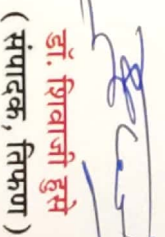 डॉ. शिवाजी हुसे
( संपादक, तिफण )